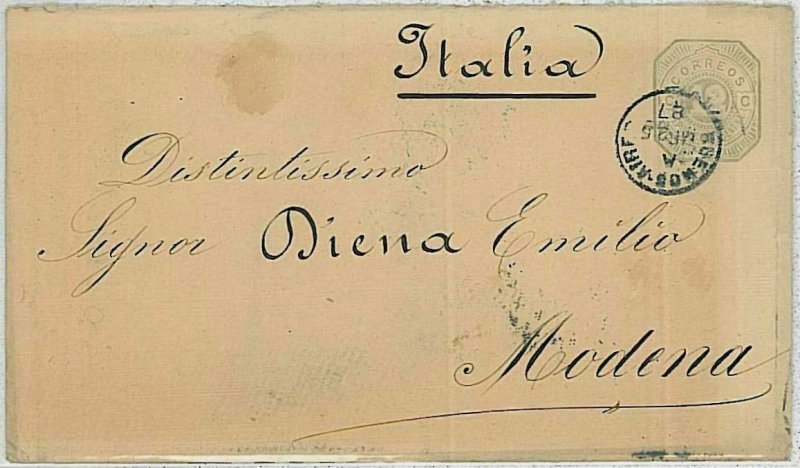 Italia
CORREOS
C C
BUENOS AIRES
87
Distintissimo
Signor Diena Emilio
Modena